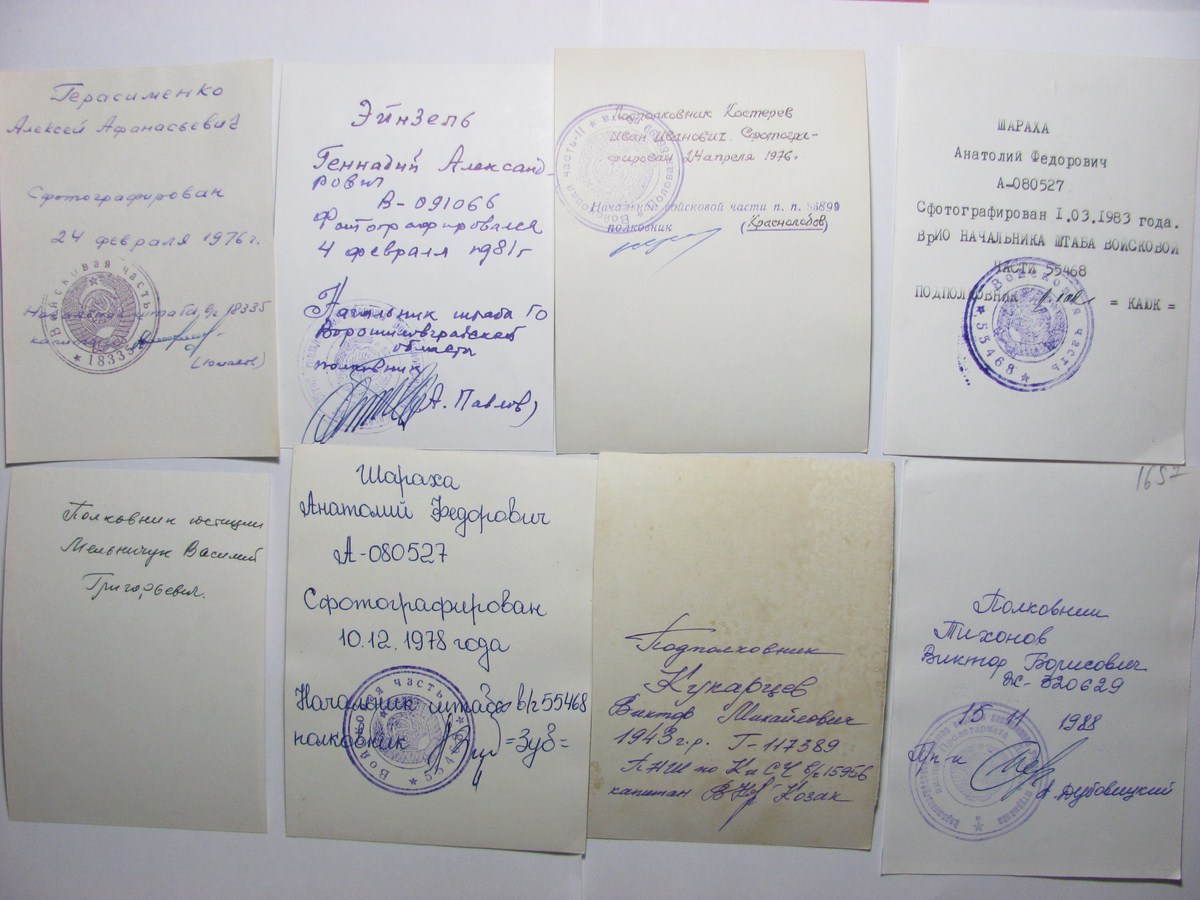 Герасименко
Алексей Афанасьевич
Сфотографирован
24 февраля 1976 г.
Начальник штаба в/ч 18335
Войсковая часть
* 18335 *
Эйнзель
Геннадий Александ-
рович
В-091066
Фотографировался
4 февраля 1981 г
Начальник штаба ГО
Ворошиловградской
области
полковник
(А. Павлов)
Подполковник Костерев
Иван Иванович. Сфотогра-
фирован 24 апреля 1976 г.
Начальник войсковой части п. п.
полковник (Краснолобов)
ШАРАХА
Анатолий Федорович
А-080527
Сфотографирован I.03.1983 года.
ВрИО НАЧАЛЬНИКА ШТАБА ВОЙСКОВОЙ
ЧАСТИ 55468
ПОДПОЛКОВНИК = КАЮК =
Войсковая часть
* 55468 *
Полковник юстиции
Мельничук Василий
Григорьевич.
Шараха
Анатолий Федорович
А-080527
Сфотографирован
10.12.1978 года
Начальник штаба в/ч 55468
полковник =Зуб=
Войсковая часть
* 55468 *
Подполковник
Кухарцев
Виктор Михайлович
1943 г.р. Г-117389
ПНШ по К и СЧ в/ч 15956
капитан Козак
1657
Полковник
Тихонов
Виктор Борисович
Ж-320629
15 11 1988
П/п-к
А. Дубовицкий